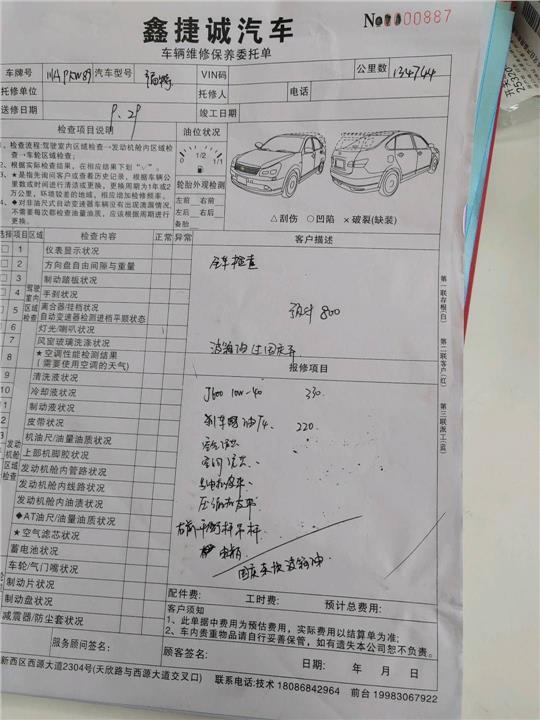 鑫捷诚汽车
车辆维修保养委托单
No 0000887
车牌号 汽车型号 福特 VIN码 公里数 134744
托修单位 托修人 电话
送修日期 9.29 竣工日期
检查项目说明 油位状况
1、检查流程:驾驶室内区域检查→发动机舱内区域检查→车轮区域检查;
2、根据实际检查结果,在相应结果下划"√"。
3、★是指先询问客户或查看历史记录,根据车辆公里数或时间进行清洁或更换,更换周期为1年或2万公里,环境较差的地域,相应增加检修频率。
4、◆对非油尺式自动变速器车辆应有出现渗漏情况,不需要每次都检查油量油质,应该根据周期进行更换。
0 1/2 1/1
轮胎外观检测
左前 右前
左后 右后
备胎
△刮伤 ○凹陷 ×破裂(缺装)
选择 项目 区域 检查内容 正常 异常 客户描述
驾驶室内区域检查
1 仪表显示状况
2 方向盘自由间隙与重量
3 制动踏板状况
4 手刹状况
5 离合器/挂档状况
自动变速器检测进档平顺状态
6 灯光/喇叭状况
7 风窗玻璃洗涤状况
8 ★空调性能检测结果
(需要使用空调的天气)
全车检查
预计 800
波箱油过国庆弄
报修项目
发动机舱
9 清洗液状况
10 冷却液状况
1 制动液状况
2 皮带状况
3 机油尺/油量油质状况
上部机脚胶状况
发动机舱内管路状况
发动机舱内线路状况
发动机舱内油渍状况
◆AT油尺/油量油质状况
★空气滤芯状况
蓄电池状况
车轮/气门嘴状况
制动片状况
制动盘状况
减震器/防尘套状况
J600 10W-40 330
刹车油 220
空气滤芯
空调滤芯
发电机皮带
压缩机皮带
右前平衡杆吊杆
国庆来换波箱油
配件费: 工时费: 预计总费用:
客户须知
1、此单据中费用为预估费用,实际费用以结算单为准;
2、车内贵重物品请自行妥善保管,如有遗失本公司恕不负责。
服务顾问签名: 顾客签名: 日期: 年 月 日
新西区西源大道2304号(天欣路与西源大道交叉口) 联系电话:技术 18086842964 前台 19983067922
第一联存根(白) 第二联客户(红) 第三联派工(蓝)